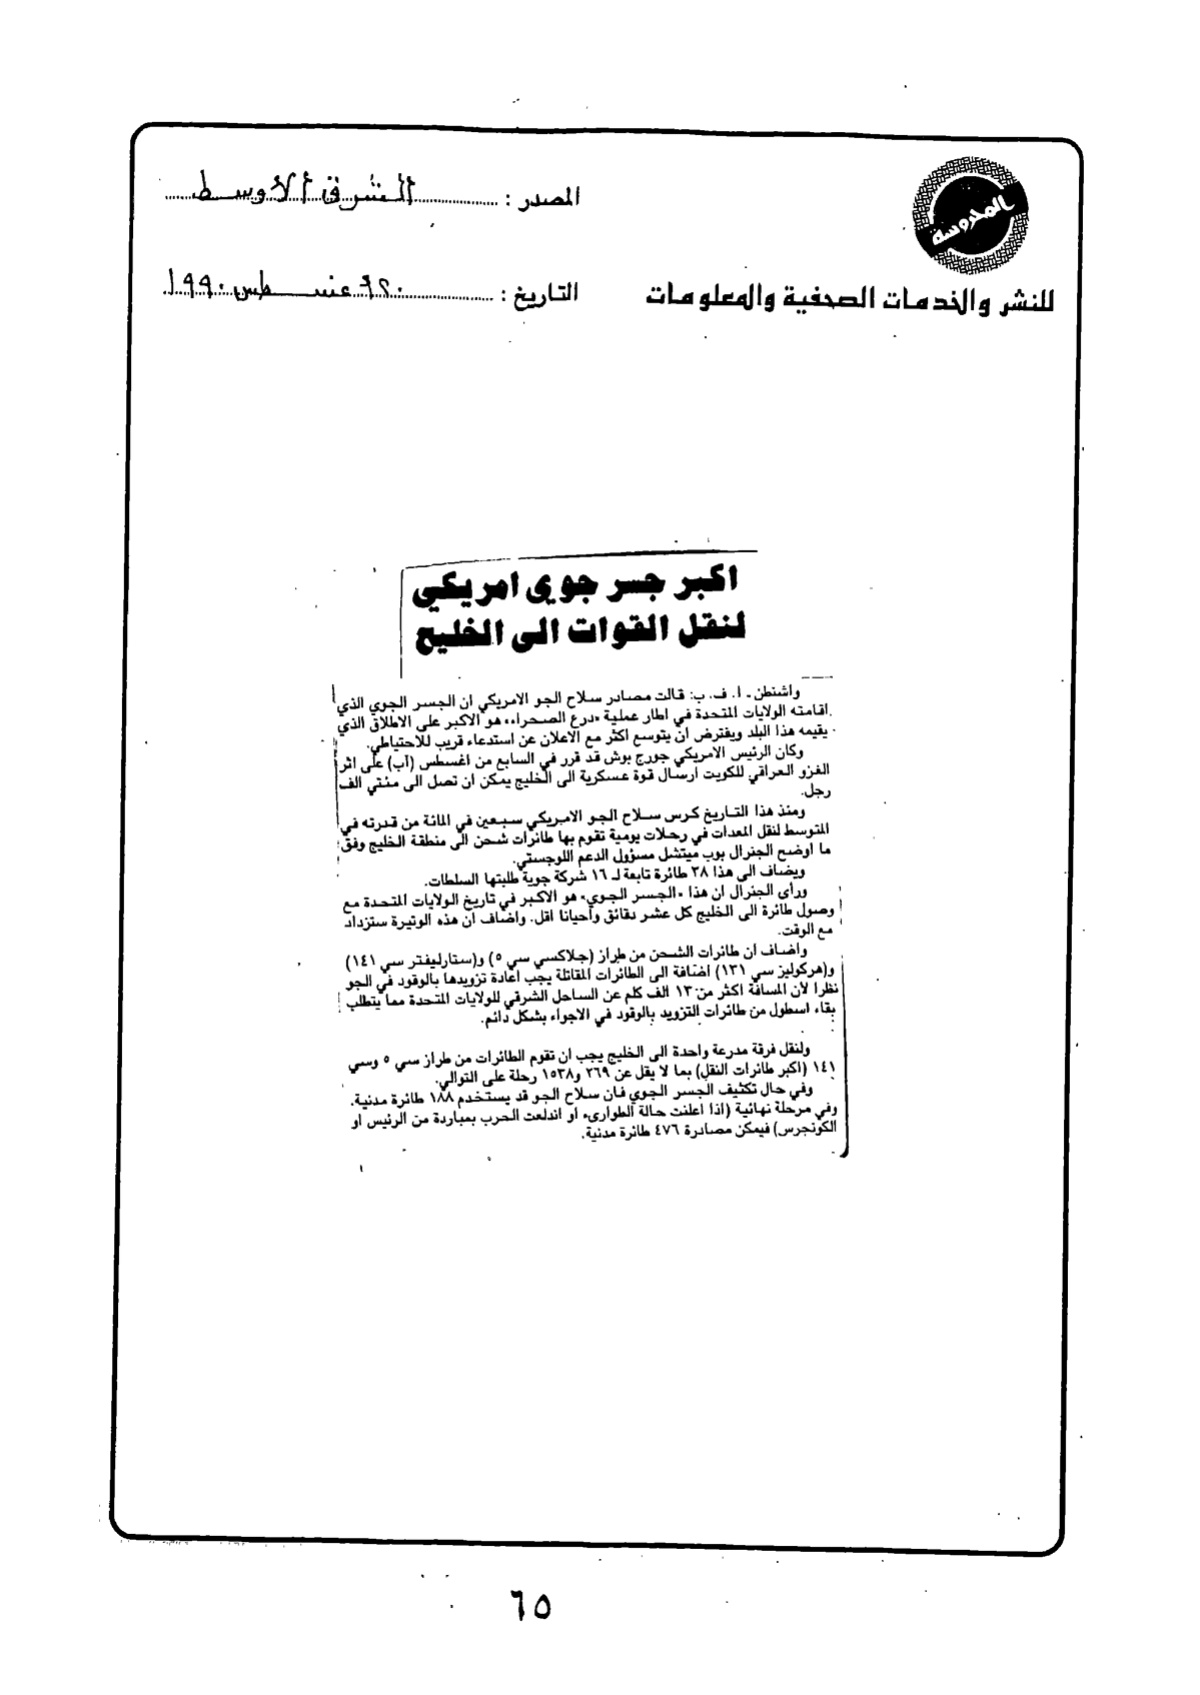 المحروسة
للنشر والخدمات الصحفية والمعلومات
المصدر : الشرق الأوسط
التاريخ : ٢٠ أغسطس ١٩٩٠
اكبر جسر جوي امريكي
لنقل القوات الى الخليج
واشنطن ـ ا. ف. ب: قالت مصادر سلاح الجو الامريكي ان الجسر الجوي الذي
اقامته الولايات المتحدة في اطار عملية «درع الصحراء» هو الاكبر على الاطلاق الذي
يقيمه هذا البلد ويفترض ان يتوسع اكثر مع الاعلان عن استدعاء قريب للاحتياطي.
وكان الرئيس الامريكي جورج بوش قد قرر في السابع من اغسطس (آب) على اثر
الغزو العراقي للكويت ارسال قوة عسكرية الى الخليج يمكن ان تصل الى مئتي الف
رجل.
ومنذ هذا التاريخ كرس سلاح الجو الامريكي سبعين في المائة من قدرته في
المتوسط لنقل المعدات في رحلات يومية تقوم بها طائرات شحن الى منطقة الخليج وفق
ما اوضح الجنرال بوب ميتشل مسؤول الدعم اللوجستي.
ويضاف الى هذا ٣٨ طائرة تابعة لـ ١٦ شركة جوية طلبتها السلطات.
ورأى الجنرال ان هذا «الجسر الجوي» هو الاكبر في تاريخ الولايات المتحدة مع
وصول طائرة الى الخليج كل عشر دقائق وأحيانا اقل. واضاف ان هذه الوتيرة ستزداد
مع الوقت.
واضاف ان طائرات الشحن من طراز (جلاكسي سي ٥) و(ستارليفتر سي ١٤١)
و(هركوليز سي ١٣١) اضافة الى الطائرات المقاتلة يجب اعادة تزويدها بالوقود في الجو
نظرا لأن المسافة اكثر من ١٣ الف كلم عن الساحل الشرقي للولايات المتحدة مما يتطلب
بقاء اسطول من طائرات التزويد بالوقود في الاجواء بشكل دائم.
ولنقل فرقة مدرعة واحدة الى الخليج يجب ان تقوم الطائرات من طراز سي ٥ وسي
١٤١ (اكبر طائرات النقل) بما لا يقل عن ٢٦٩ و١٥٣٨ رحلة على التوالي.
وفي حال تكثيف الجسر الجوي فان سلاح الجو قد يستخدم ١٨٨ طائرة مدنية.
وفي مرحلة نهائية (اذا اعلنت حالة الطوارىء او اندلعت الحرب بمبادرة من الرئيس او
الكونجرس) فيمكن مصادرة ٤٧٦ طائرة مدنية.
٦٥